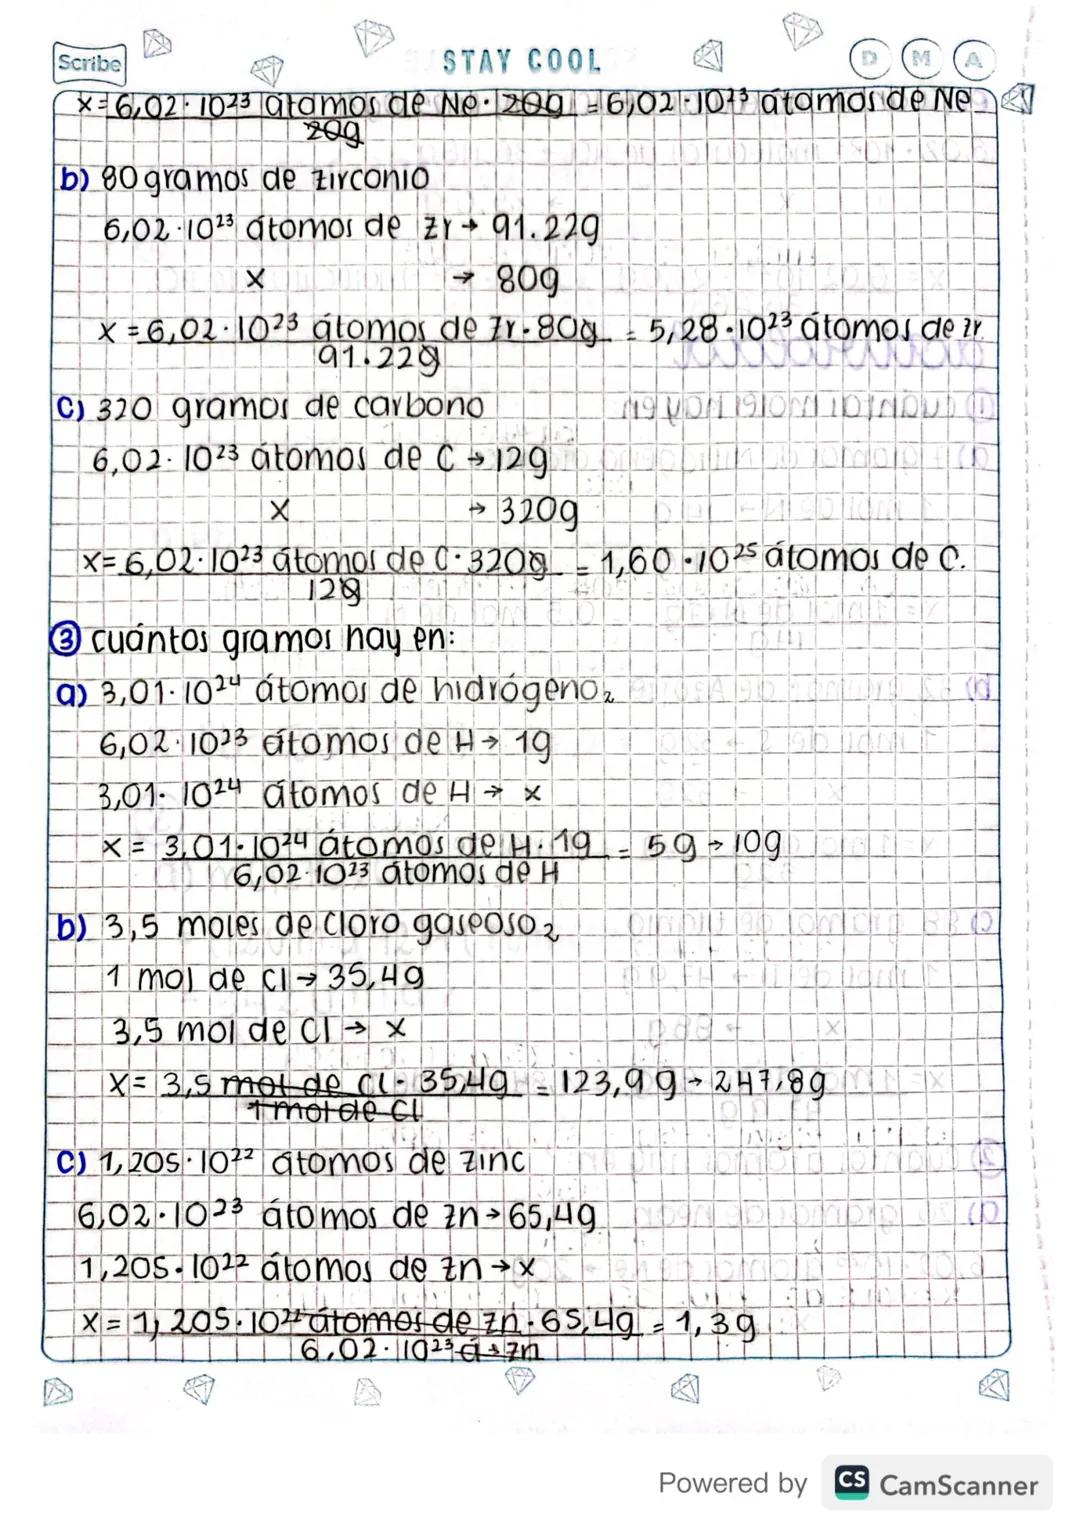 Scribe
STAY COOL
D M A
x=6,02·10²³ átomos de Ne·20g = 6,02·10²³ átomos de Ne
20g
b) 80 gramos de zirconio
6,02·10²³ átomos de Zr → 91.22g
x → 80g
x = 6,02·10²³ átomos de Zr·80g = 5,28·10²³ átomos de Zr
91.22g
c) 320 gramos de carbono
6,02·10²³ átomos de C → 12g
x → 320g
x= 6,02·10²³ átomos de C·320g = 1,60·10²⁵ átomos de C.
12g
③ cuántos gramos hay en:
a) 3,01·10²⁴ átomos de hidrógeno₂
6,02·10²³ átomos de H → 1g
3,01·10²⁴ átomos de H → x
x = 3,01·10²⁴ átomos de H·1g = 5g → 10g
6,02·10²³ átomos de H
b) 3,5 moles de cloro gaseoso₂
1 mol de Cl → 35,4g
3,5 mol de Cl → x
x= 3,5 mol de Cl·35,4g = 123,9g → 247,8g
1 mol de Cl
c) 1,205·10²² átomos de zinc
6,02·10²³ átomos de zn → 65,4g
1,205·10²² átomos de zn → x
x = 1,205·10²² átomos de zn·65,4g = 1,3g
6,02·10²³ á → zn
Powered by CS CamScanner